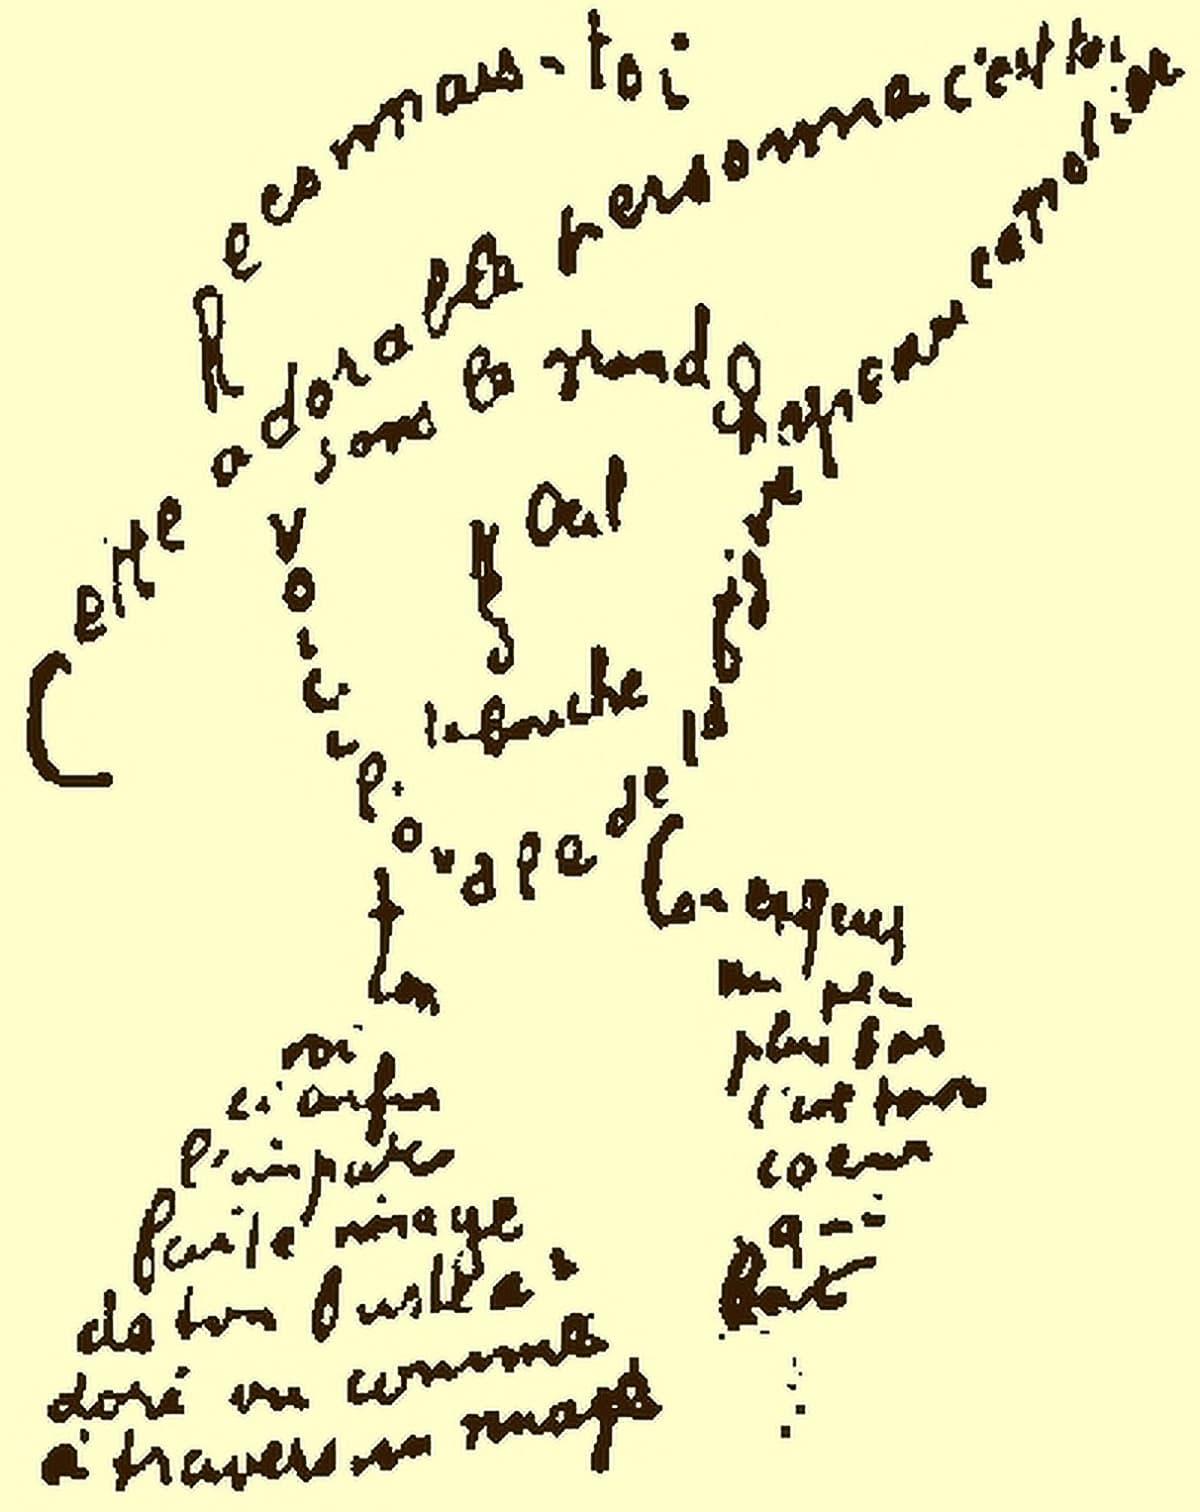 Reconnais-toi
Cette adorable personne c'est toi
sous le grand chapeau canotier
Oeil
Nez
la bouche
voici l'ovale de ta figure
ton
Cou exquis
voi
ci enfin
l'impar
faite image
de ton buste a
doré vu comme
à travers un nuage
un peu
plus bas
c'est ton
coeur
qui
bat